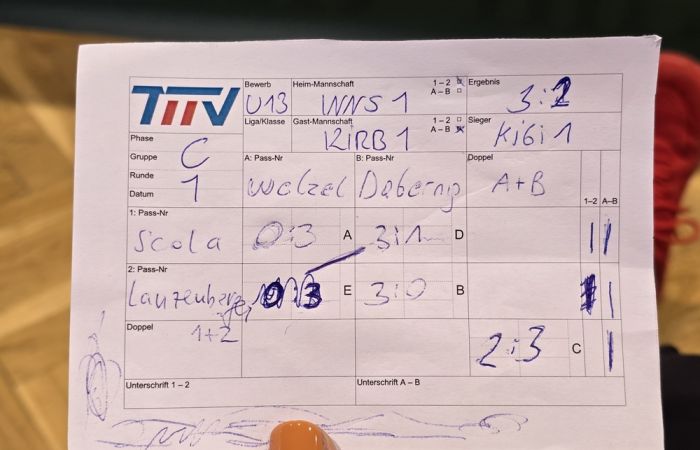 TTTV
Bewerb
U13
Heim-Mannschaft
WNS 1
1 – 2
A – B
Ergebnis
3:2
Liga/Klasse
Gast-Mannschaft
KIRB 1
1 – 2
A – B
Sieger
KiGi 1
Phase
Gruppe
C
Runde
Datum
1
A: Pass-Nr
Welzel
B: Pass-Nr
Doppel
A+B
1–2 A–B
1: Pass-Nr
Scola
0:3 A
3:1 D
| |
2: Pass-Nr
Lanzenberger
0:3 E
3:0 B
|
Doppel
1+2
2:3 C
|
Unterschrift 1 – 2
Unterschrift A – B